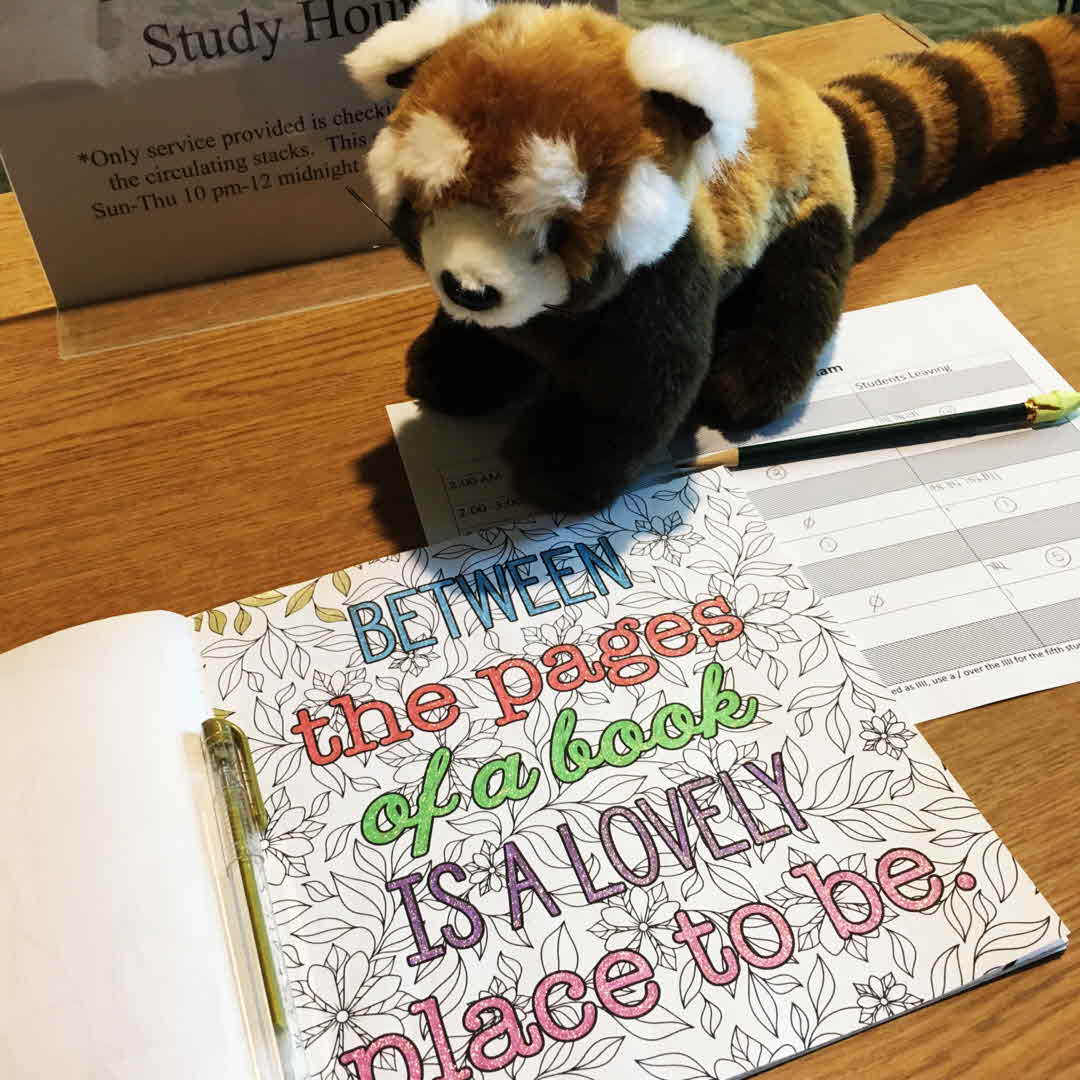 Study Hou
*Only service provided is checki
the circulating stacks. This
Sun-Thu 10 pm-12 midnight
am
Students Leaving
2:00 AM
2:00 -3:00
2
1
5
ed as IIII, use a / over the IIII for the fifth stu
BETWEEN
the pages
of a book
IS A LOVELY
place to be.